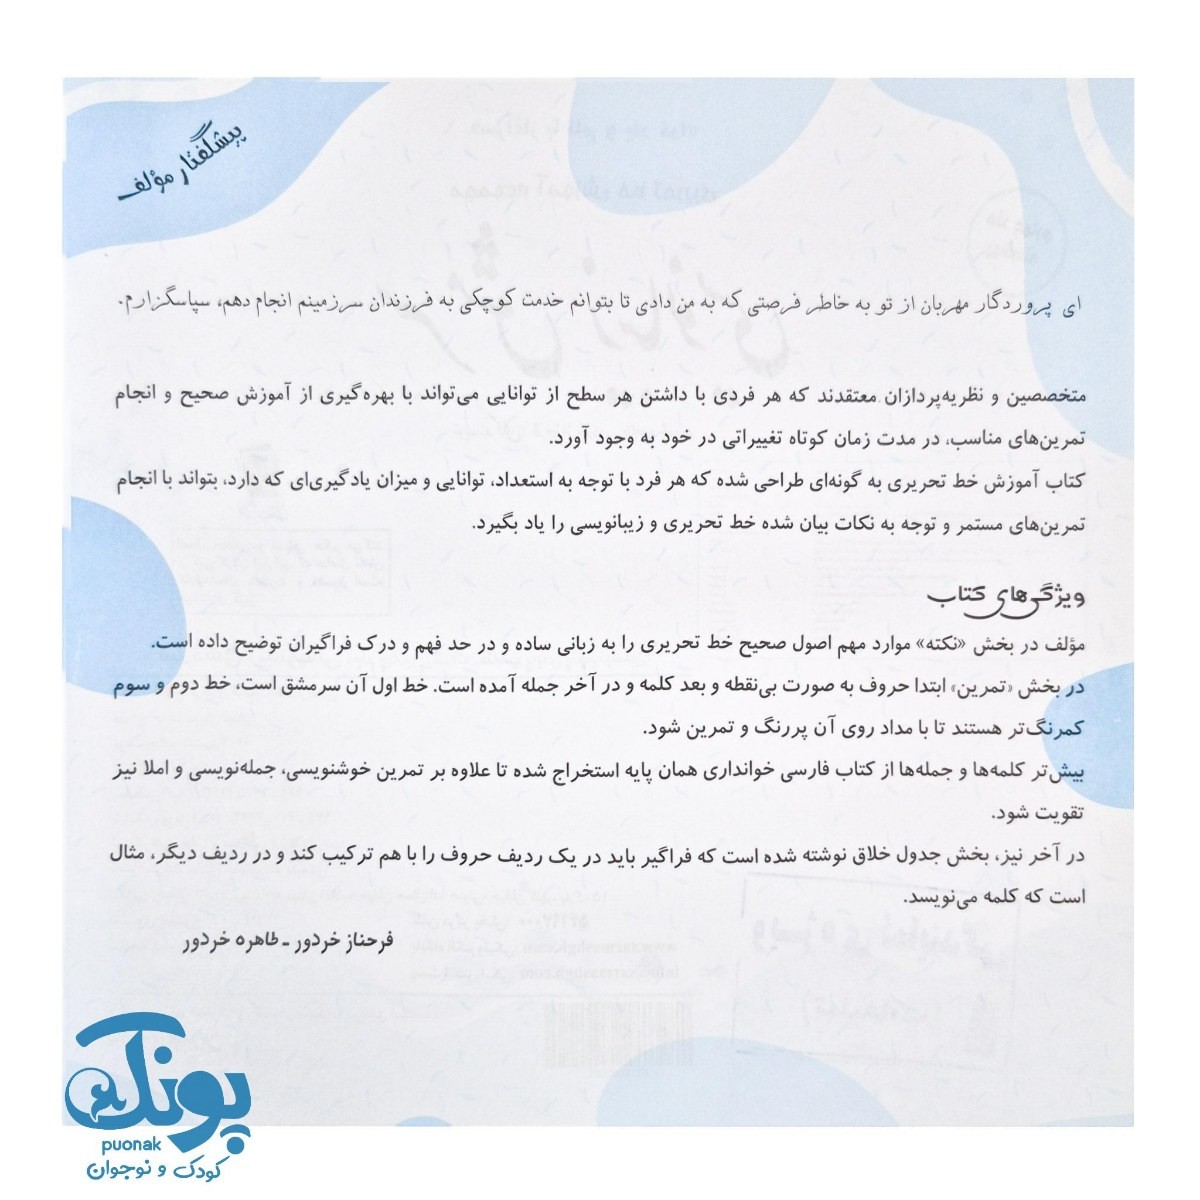 پیشگفتار مؤلف
ای پروردگار مهربان از تو به خاطر فرصتی که به من دادی تا بتوانم خدمت کوچکی به فرزندان سرزمینم انجام دهم، سپاسگزارم.
متخصصین و نظریه‌پردازان معتقدند که هر فردی با داشتن هر سطح از توانایی می‌تواند با بهره‌گیری از آموزش صحیح و انجام
تمرین‌های مناسب، در مدت زمان کوتاه تغییراتی در خود به وجود آورد.
کتاب آموزش خط تحریری به گونه‌ای طراحی شده که هر فرد با توجه به استعداد، توانایی و میزان یادگیری‌ای که دارد، بتواند با انجام
تمرین‌های مستمر و توجه به نکات بیان شده خط تحریری و زیبانویسی را یاد بگیرد.
ویژگی‌های کتاب
مؤلف در بخش «نکته» موارد مهم اصول صحیح خط تحریری را به زبانی ساده و در حد فهم و درک فراگیران توضیح داده است.
در بخش «تمرین» ابتدا حروف به صورت بی‌نقطه و بعد کلمه و در آخر جمله آمده است. خط اول آن سرمشق است، خط دوم و سوم
کمرنگ‌تر هستند تا با مداد روی آن پررنگ و تمرین شود.
بیش‌تر کلمه‌ها و جمله‌ها از کتاب فارسی خوانداری همان پایه استخراج شده تا علاوه بر تمرین خوشنویسی، جمله‌نویسی و املا نیز
تقویت شود.
در آخر نیز، بخش جدول خلاق نوشته شده است که فراگیر باید در یک ردیف حروف را با هم ترکیب کند و در ردیف دیگر، مثال
است که کلمه می‌نویسد.
فرحناز خردور ـ طاهره خردور
پونک
puonak
کودک و نوجوان